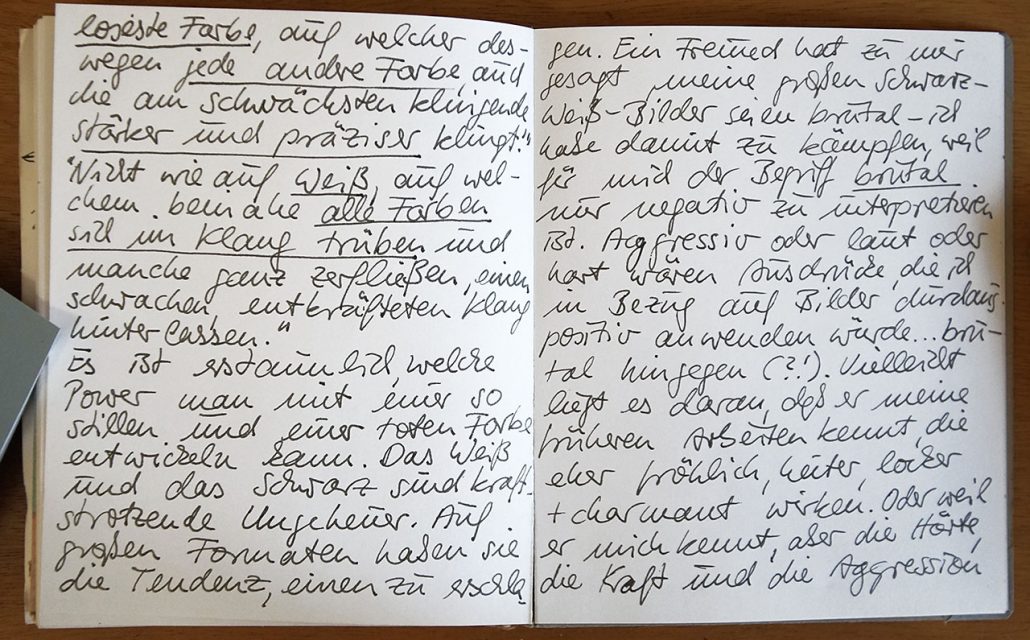 loseste Farbe, auf welcher des-
wegen jede andere Farbe, auch
die am schwächsten klingende
stärker und präziser klingt."
"Nicht wie auf Weiß, auf wel-
chem beinahe alle Farben
sich im Klang trüben und
manche ganz zerfließen, einen
schwachen, entkräfteten Klang
hinterlassen."
Es ist erstaunlich, welche
Power man mit einer so
stillen und einer toten Farbe
entwickeln kann. Das Weiß
und das Schwarz sind kraft-
strotzende Ungeheuer. Auf
großen Formaten haben sie
die Tendenz, einen zu erschla
gen. Ein Freund hat zu mir
gesagt meine großen Schwarz-
Weiß-Bilder seien brutal – ich
habe damit zu kämpfen, weil
für mich der Begriff brutal
nur negativ zu interpretieren
ist. Aggressiv oder laut oder
hart wären Ausdrücke, die ich
in Bezug auf Bilder durchaus
positiv anwenden würde... bru-
tal hingegen (?!). Vielleicht
liegt es daran, daß er meine
früheren Arbeiten kennt, die
eher fröhlich, heiter, locker
+ charmant wirken. Oder weil
er mich kennt, aber die Härte,
die Kraft und die Aggression